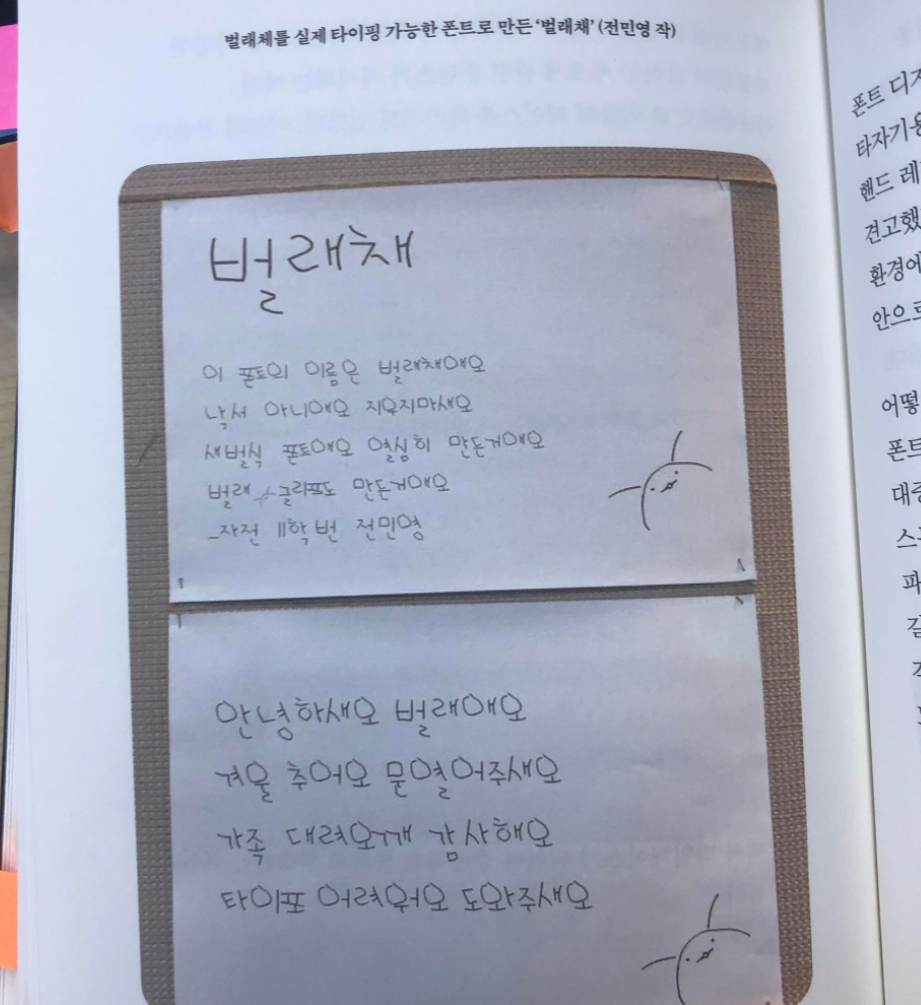 벌래체를 실제 타이핑 가능한 폰트로 만든 ‘벌래채’ (전민영 작)
벌래채
이 폰트의 이름은 벌래채애오
낙서 아니애오 지우지마새오
새벌식 폰트애오 열심히 만든거애오
벌래 글리프도 만든거애오
_자전 11학번 전민영
안녕하새오 벌래애오
겨울 추어오 문열어주새오
가족 대려오깨 감사해오
타이포 어려워오 도와주새오
폰트 디자
타자기용
핸드 레
견고했
환경에
안으로
어떻
폰트
대중